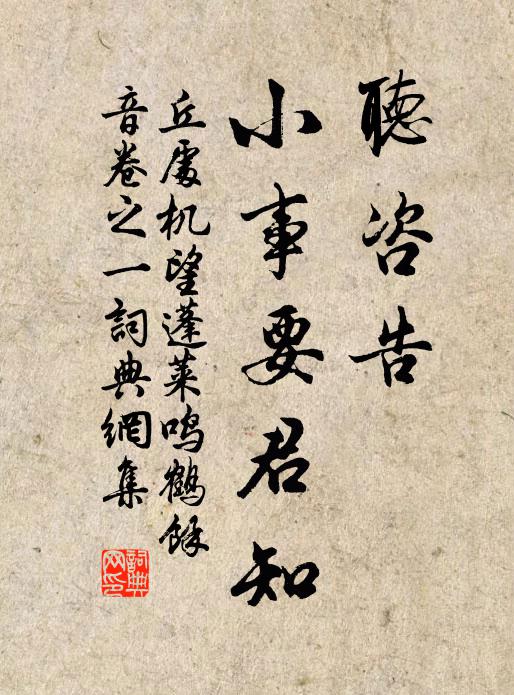 聽咨告
小事要君知
丘處机望蓬萊鳴鶴餘
音卷之一詞典網集
詞典
网印